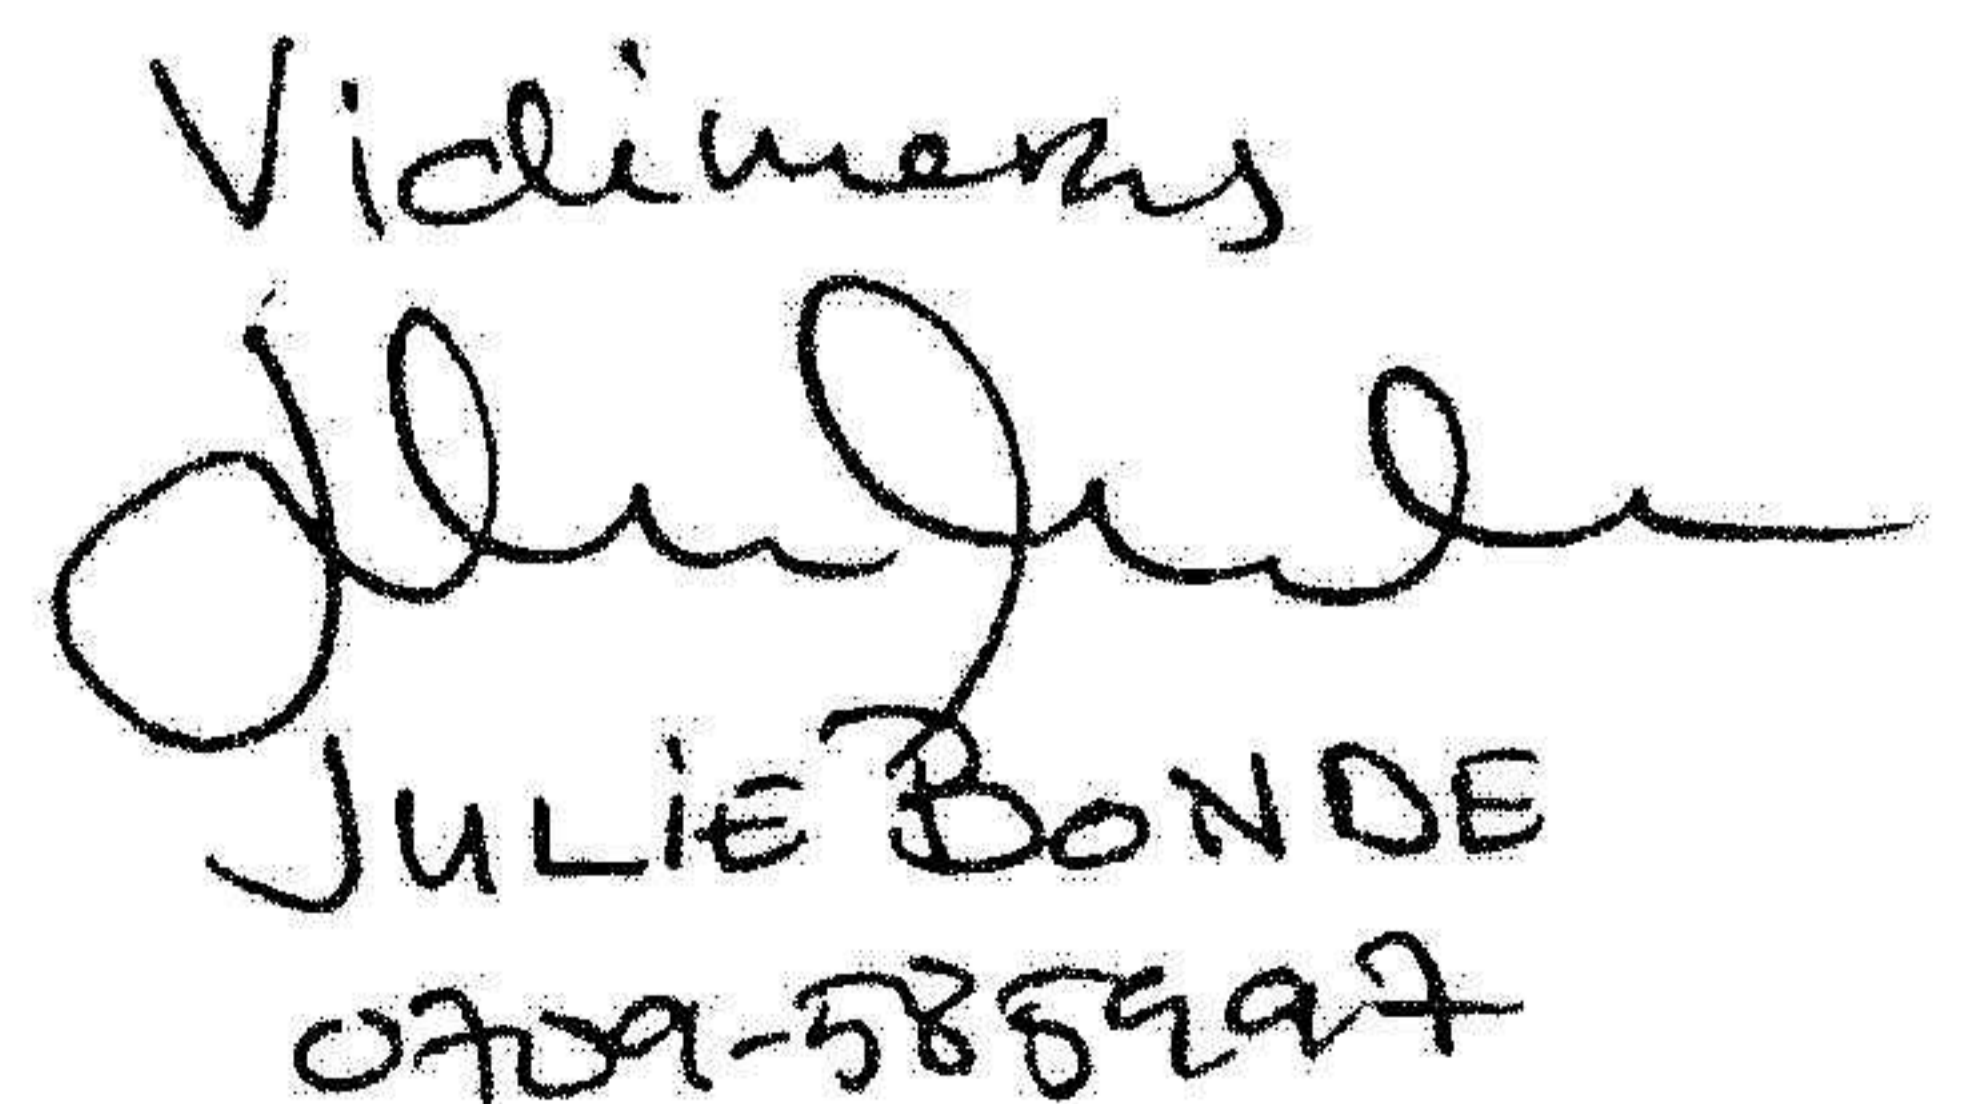 Vidimeras
JULIE BONDE
0709-588997